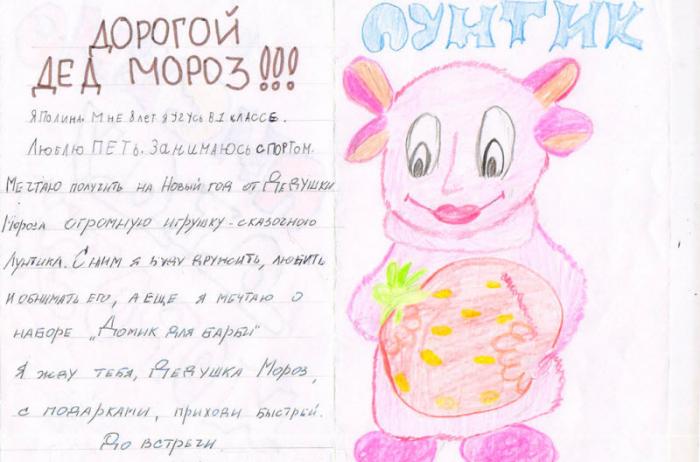 ДОРОГОЙ
ДЕД МОРОЗ!!!
Я ПОЛИНА. МНЕ 8 ЛЕТ. Я УЧУСЬ В 1 КЛАССЕ.
ЛЮБЛЮ ПЕТЬ. ЗАНИМАЮСЬ СПОРТОМ.
МЕЧТАЮ ПОЛУЧИТЬ НА НОВЫЙ ГОД ОТ ДЕДУШКИ
МОРОЗА ОГРОМНУЮ ИГРУШКУ - СКАЗОЧНОГО
ЛУНТИКА. С НИМ Я БУДУ ДРУЖИТЬ, ЛЮБИТЬ
И ОБНИМАТЬ ЕГО, А ЕЩЕ Я МЕЧТАЮ О
НАБОРЕ „ДОМИК ДЛЯ БАРБИ"
Я ЖДУ ТЕБЯ, ДЕДУШКА МОРОЗ,
С ПОДАРКАМИ, ПРИХОДИ БЫСТРЕЙ.
ДО ВСТРЕЧИ
ЛУНТИК